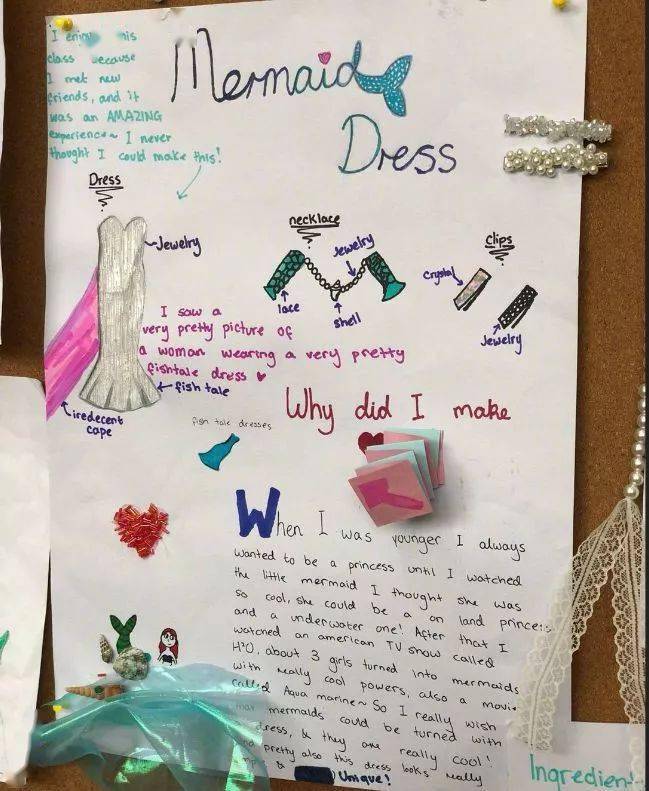 I enjoy his
class because
I met new
friends, and it
was an AMAZING
experience~ I never
thought I could make this!
Mermaid
Dress
Dress
Jewelry
fish tale
iredecent
cape
necklace
Jewelry
lace
shell
Clips
crystal
Jewelry
I saw a
very pretty picture of
a woman wearing a very pretty
fishtale dress ♥
fish tale dresses
Why did I make
When I was younger I always
wanted to be a princess until I watched
the little mermaid I thought she was
so cool, she could be a on land princess
and a underwater one! After that I
watched an american TV show called
H²O, about 3 girls turned into mermaids
with really cool powers, also a movie
called Aqua marine~ So I really wish
that mermaids could be turned with
dress, & they are really cool!
pretty also this dress looks really
& Unique!
Ingredien